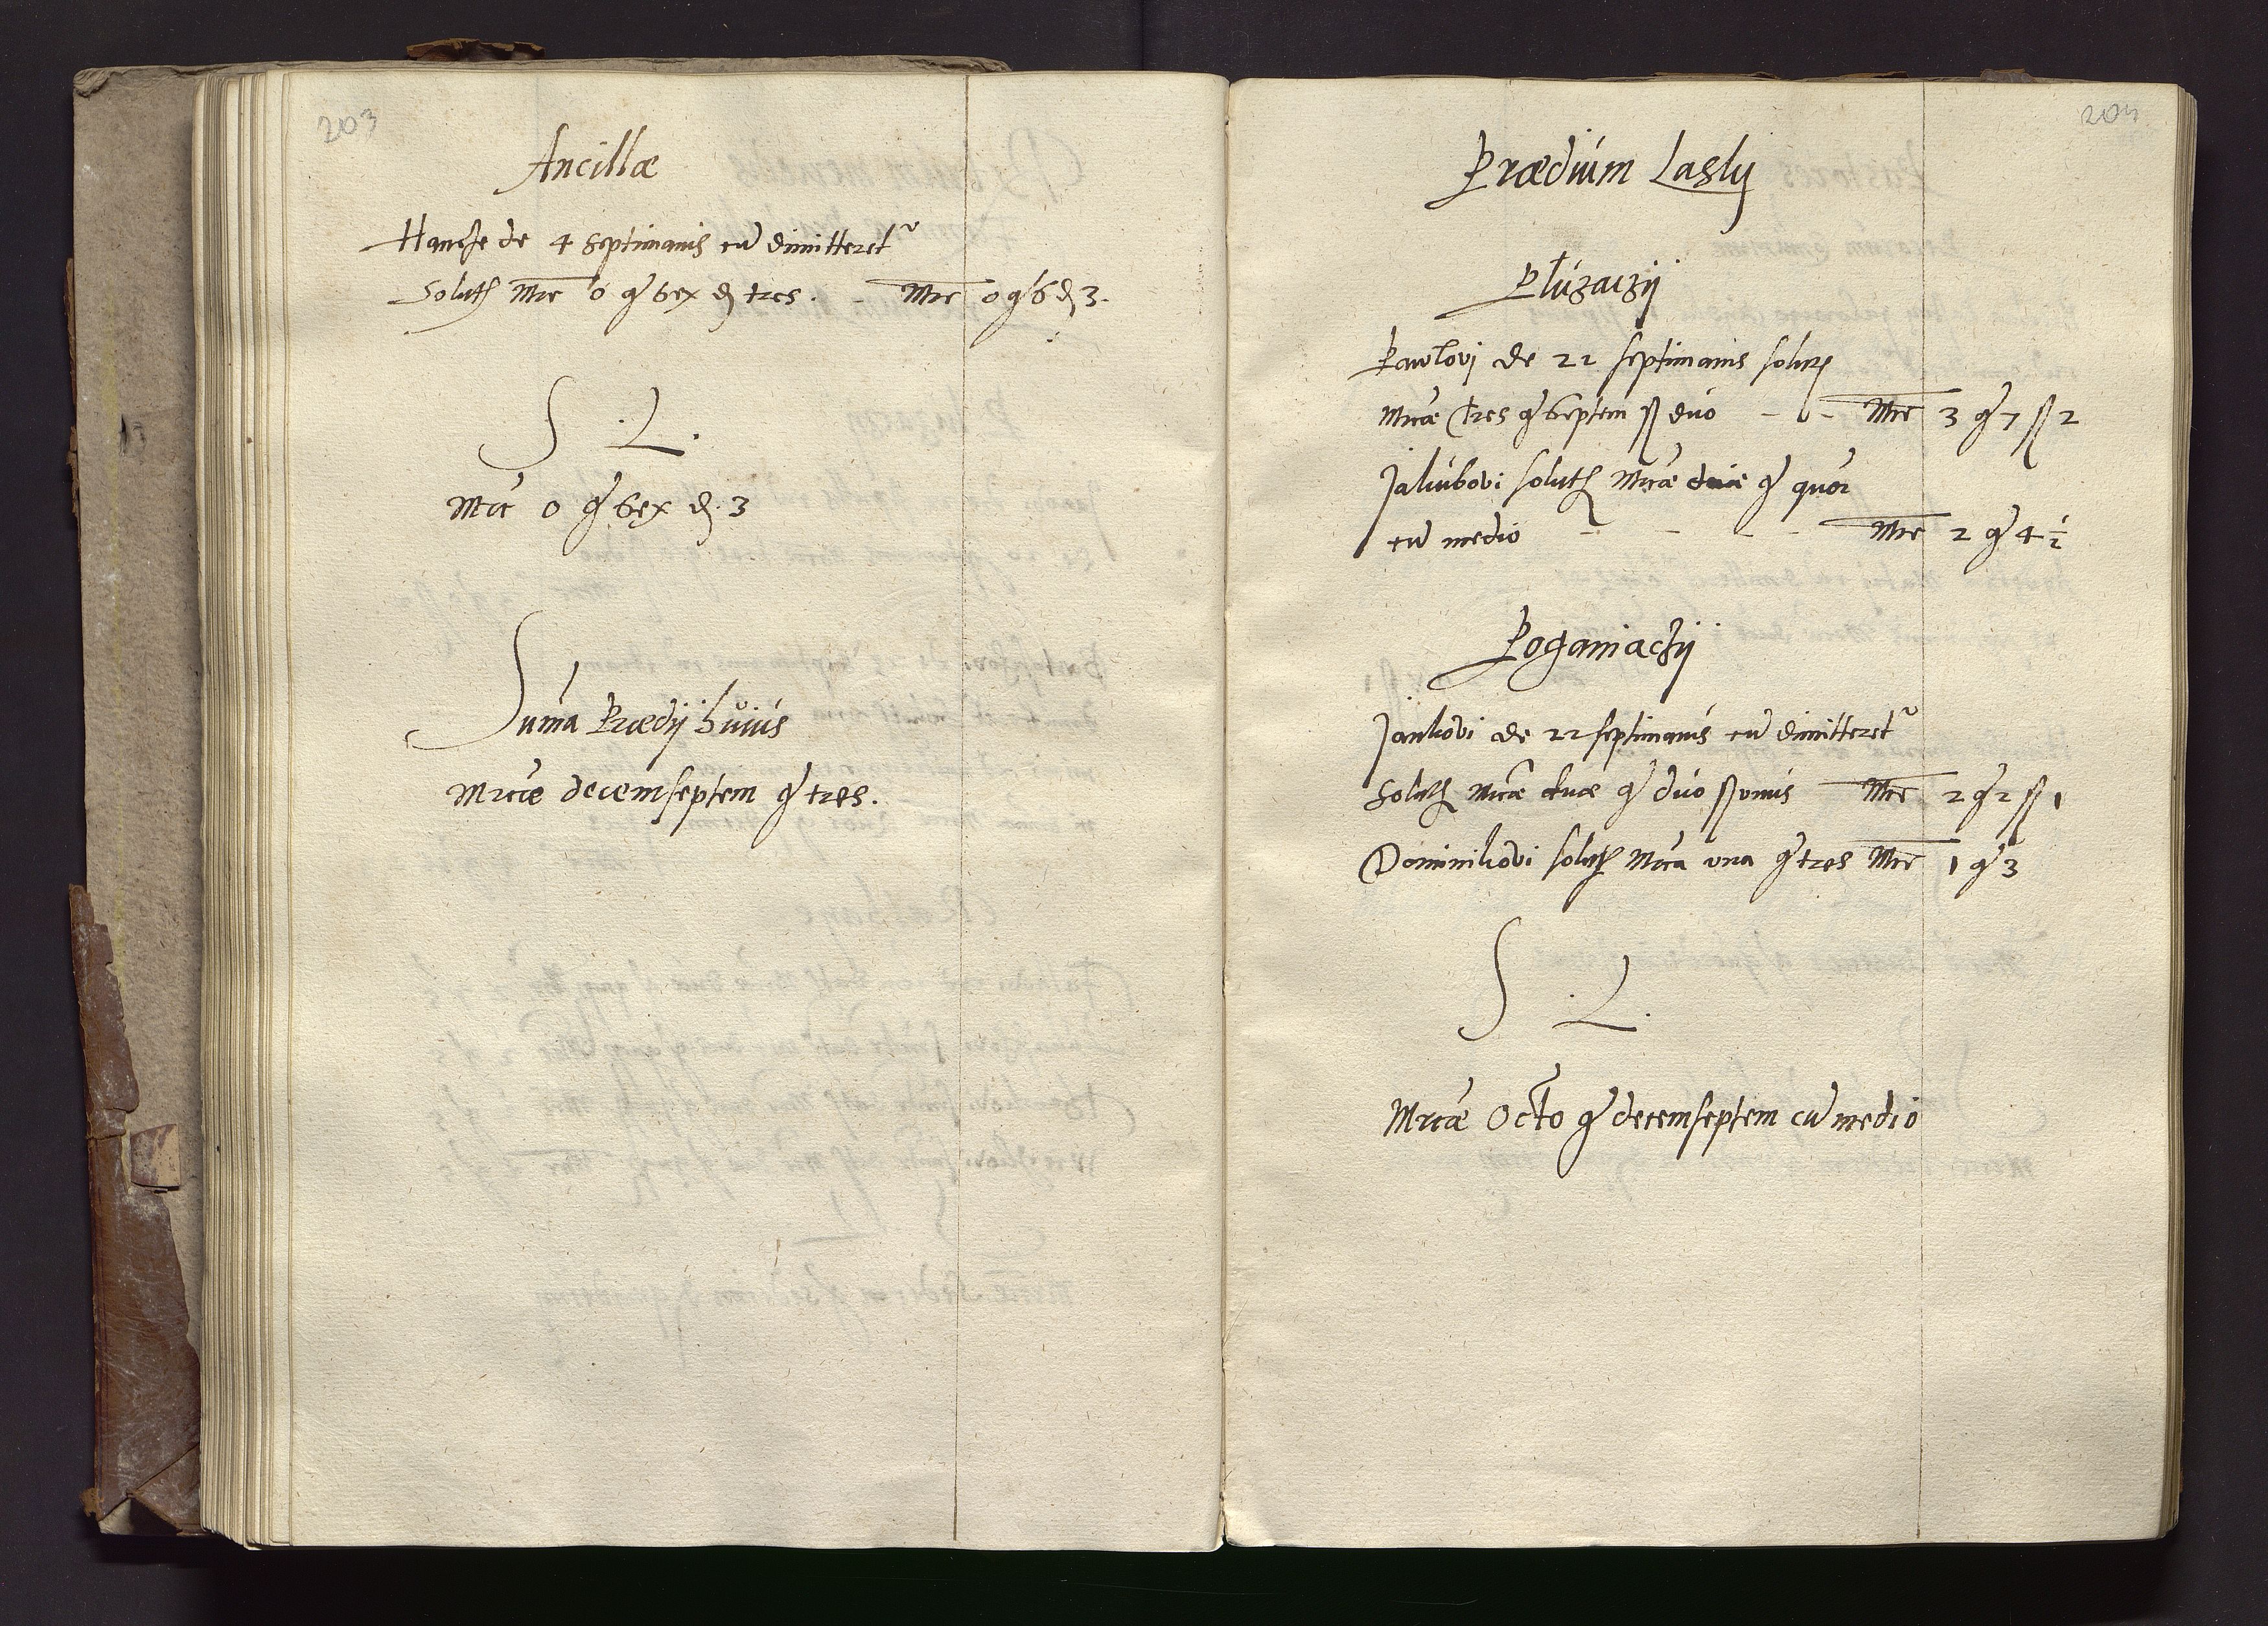 203
Ancillæ
Hancze de 4 septimanis cū dimitteret͛
Solut͛ Mrc̄ 0 g͛ sex đ tres. - Mrc̄ 0 g͛ 6 đ 3.
S .L.
Mrc̄ 0 g͛ sex đ. 3
Suma Prædij huius
Mrcæ decemseptem g͛ tres.
204
Prædium Lasky
Pługaczÿ
Pawlovj de 22 septimanis solut͛
Mrcæ tres g͛ septem ſſ duo - - Mrc̄ 3 g͛ 7 ſſ 2
Jakubovi solut͛ Mrcæ duæ g͛ quor
cū medio - - - - Mrc̄ 2 g͛ 4 ½
Poganiaczÿ
Jankovi de 22 septimanis cū dimitteret͛
Solut͛ Mrcæ duæ g͛ duo ſſ unus Mrc̄ 2 g͛ 2 ſſ 1
Dominikovi solut͛ Mrca una g͛ tres Mrc̄ 1 g͛ 3
S .L.
Mrcæ Octo g͛ decemseptem cū medio